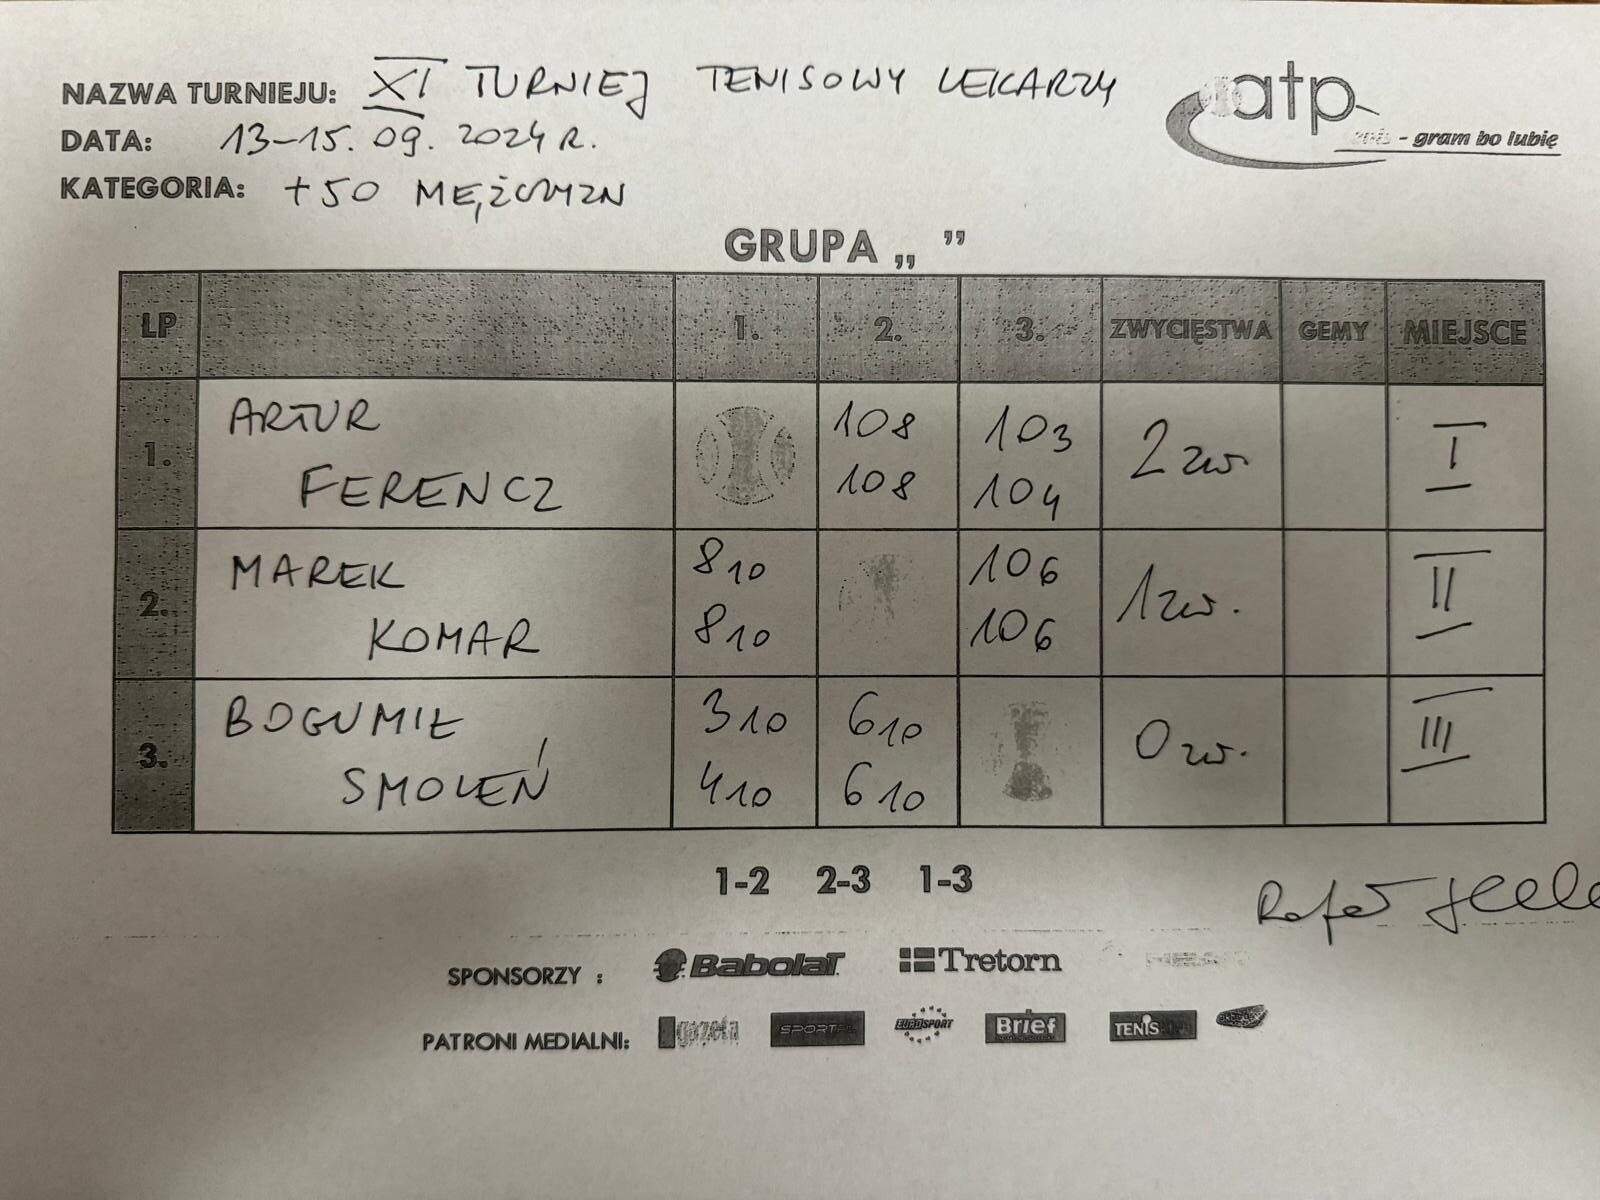 NAZWA TURNIEJU: XI TURNIEJ TENISOWY LEKARZY
DATA: 13-15.09.2024 R.
KATEGORIA: +50 MĘŻCZYZN
atp
- gram bo lubię
GRUPA „ ”
LP 1. 2. 3. ZWYCIĘSTWA GEMY MIEJSCE
1. ARTUR FERENCZ 108 108 103 104 2 zw. I
2. MAREK KOMAR 810 810 106 106 1 zw. II
3. BOGUMIŁ SMOLEŃ 310 410 610 610 0 zw. III
1-2 2-3 1-3
Rafał
SPONSORZY : Babolat Tretorn
PATRONI MEDIALNI: gazeta SPORT EUROSPORT Brief TENIS